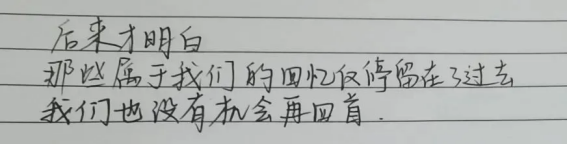 后来才明白
那些属于我们的回忆仅停留在了过去
我们也没有机会再回首.